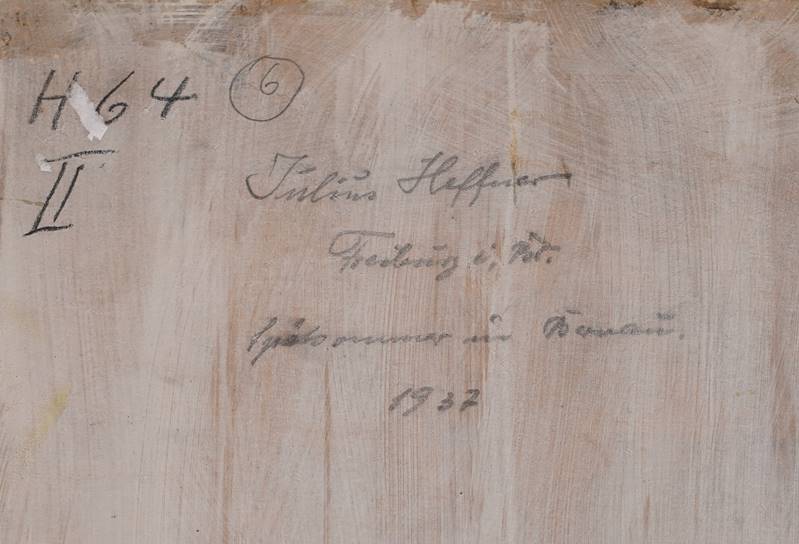 H 64 6
II
Julius Heffner
Freiburg i. Br.
Spätsommer in
1937